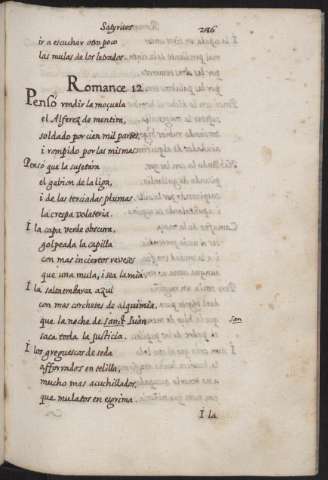 Satyricos 246
ir a escuchar otro poco
las mulas de los letrados.
Romance 12
Penso rendir la moçuela
el Alferez de mentira,
soldado por cien mil partes,
i rompido por las mismas
Pensó que la sujetara
el gabion de la liga,
i de las terciadas plumas
la crespa volateria.
I la capa verde obscura,
golpeada la capilla
con mas inciertos reveses
que una mula, i sea la mia
I la saltaembarca azul
con mas corchetes de alquimia,
que la noche de sanct Iuan san
saca toda la justicia.
I los greguescos de seda
afforrados en telilla,
mucho mas acuchillados,
que mulatos en esgrima.
I la